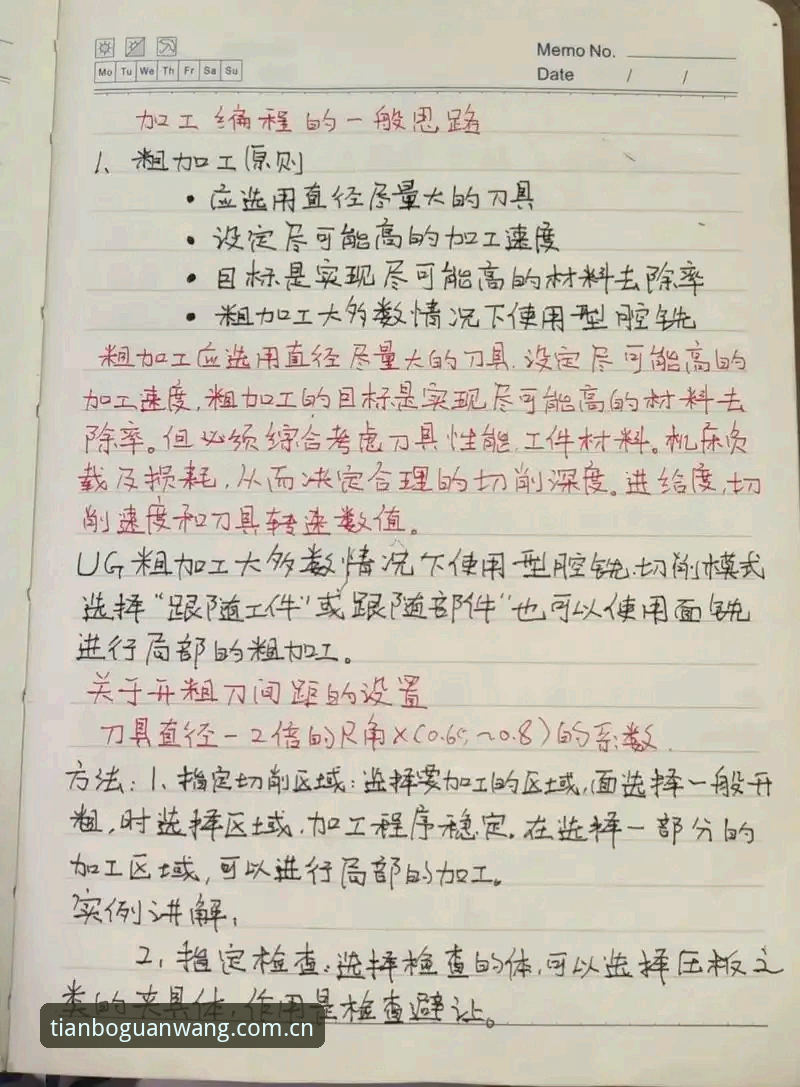 Memo No.
Mo Tu We Th Fr Sa Su
Date / /
加工编程的一般思路
1、粗加工原则
• 应选用直径尽量大的刀具
• 设定尽可能高的加工速度
• 目标是实现尽可能高的材料去除率
• 粗加工大多数情况下使用型腔铣
粗加工应选用直径尽量大的刀具.设定尽可能高的
加工速度,粗加工的目标是实现尽可能高的材料去
除率。但必须综合考虑刀具性能,工件材料。机床负
载及损耗,从而决定合理的切削深度。进给度,切
削速度和刀具转速数值。
UG粗加工大多数情况下使用型腔铣.切削模式
选择“跟随工件”或跟随部件”也可以使用面铣
进行局部的粗加工。
关于开粗刀间距的设置
刀具直径-2倍的R角×(0.65~0.8)的系数.
方法:1、指定切削区域:选择要加工的区域,面选择一般开
粗,时选择区域,加工程序稳定.在选择一部分的
加工区域,可以进行局部的加工。
实例讲解,
2、指定检查:选择检查的体,可以选择压板之
类的夹具体,作用是检查避让。
tianboguanwang.com.cn